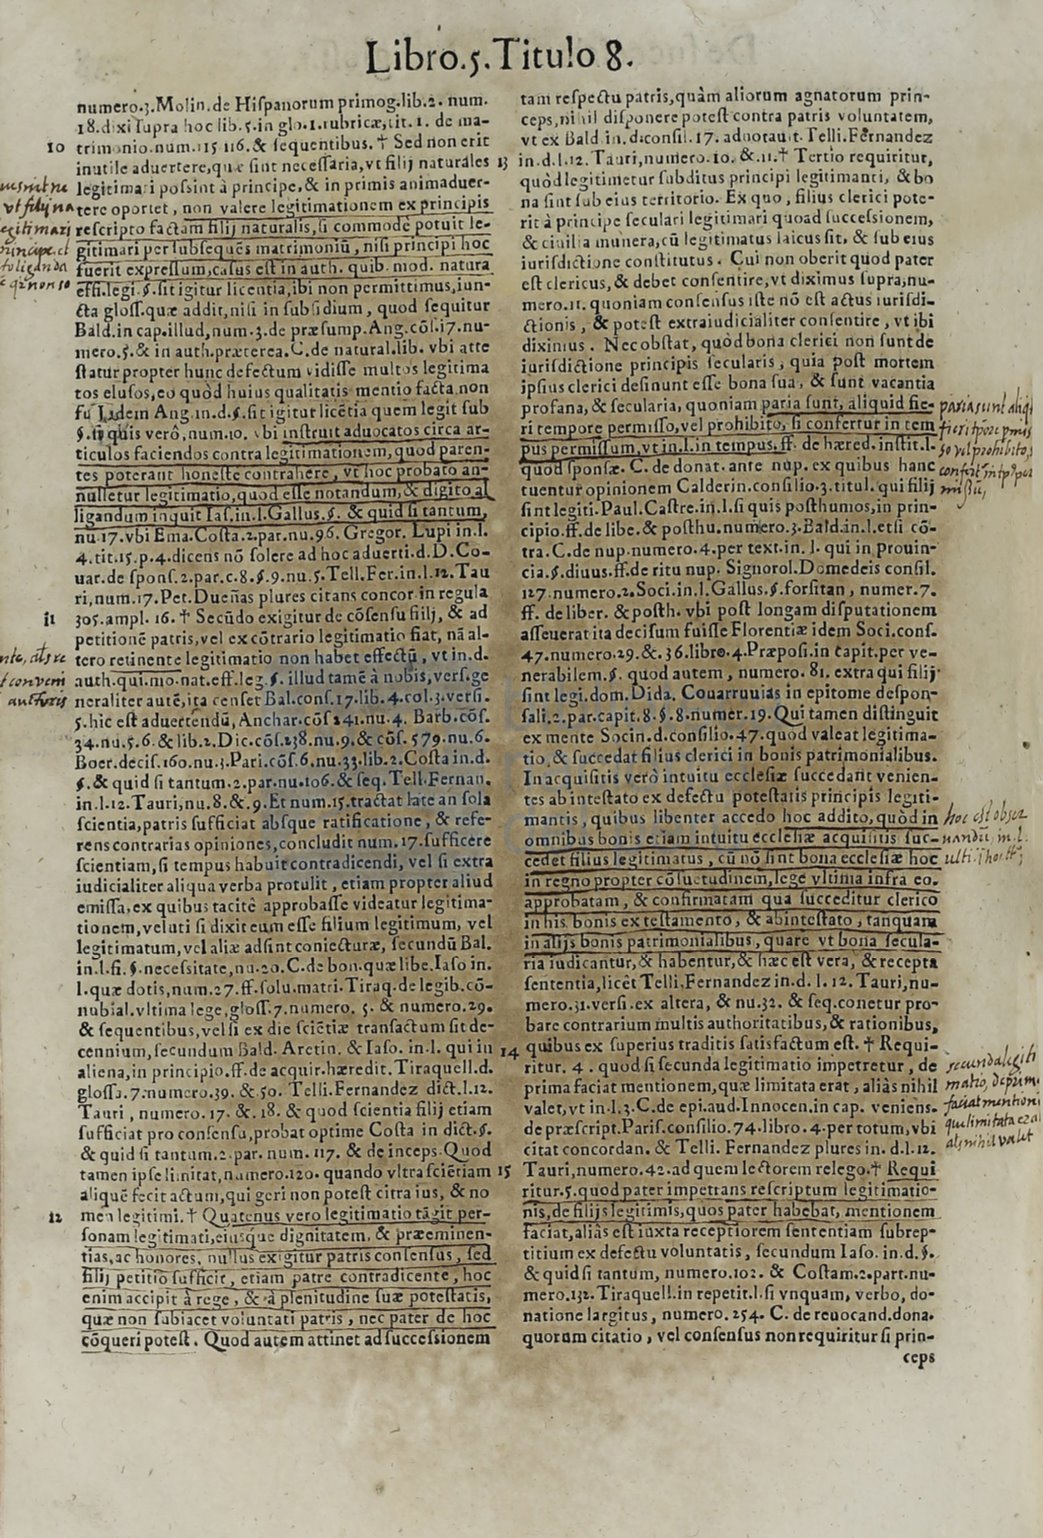 Libro.5.Titulo 8.
numero.3.Molin.de Hiſpanorum primog.lib.2. num.
18.dixi ſupra hoc lib.5.in glo.1.rubricæ,tit.1. de ma-
10 trimonio.num.115 116.& ſequentibus.† Sed non erit
inutile aduertere,quæ ſint neceſſaria,vt filij naturales
legitimari poſsint à principe,& in primis animaduer-
tere oportet, non valere legitimationem ex principis
reſcripto factam filij naturalis,ſi commodè potuit le-
gitimari per ſubſequẽs matrimoniũ, niſi principi hoc
fuerit expreſſum,caſus eſt in auth. quib. mod. natura
effi.legi.§.ſit igitur licentia,ibi non permittimus,iun-
cta gloſſ.quæ addit,niſi in ſubſidium, quod ſequitur
Bald.in cap.illud,num.3.de præſump.Ang.cõſ.17.nu-
mero.5.& in auth.præterea.C.de natural.lib. vbi atte
ſtatur propter hunc defectum vidiſſe multos legitima
tos eluſos,eo quòd huius qualitatis mentio facta non
fu Iidem Ang.in.d.§.ſit igitur licẽtia quem legit ſub
§.ſi quis verò,num.10. vbi inſtruit aduocatos circa ar-
ticulos faciendos contra legitimationem,quod paren-
tes poterant honeſte contrahere, vt hoc probato an-
nulletur legitimatio,quod eſſe notandum,& digito al
ligandum inquit Iaſ.in.l.Gallus.§. & quid ſi tantum,
nu.17.vbi Ema.Coſta.2.par.nu.96. Gregor. Lupi in.l.
4.tit.15.p.4.dicens nõ ſolere ad hoc aduerti.d.D.Co-
uar.de ſponſ.2.par.c.8.§.9.nu.5.Tell.Fer.in.l.12.Tau
ri,num.17.Pet.Dueñas plures citans concor.in regula
11 305.ampl. 16. † Secũdo exigitur de cõſenſu filij, & ad
petitionẽ patris,vel ex cõtrario legitimatio fiat, nã al-
tero retinente legitimatio non habet effectũ, vt in.d.
auth.qui.mo.nat.eff.leg.§. illud tamẽ à nobis,verſ.ge
neraliter autẽ,ita cenſet Bal.conſ.17.lib.4.col.3.verſi.
5.hic eſt aduertendũ,Anchar.cõſ 241.nu.4. Barb.cõſ.
34.nu.5.6.& lib.2.Dic.cõſ.238.nu.9.& cõſ. 579.nu.6.
Boer.deciſ.160.nu.3.Pari.cõſ.6.nu.33.lib.2.Coſta in.d.
§.& quid ſi tantum.2.par.nu.106.& ſeq.Tell.Fernan.
in.l.12.Tauri,nu.8.&.9.Et num.15.tractat late an ſola
ſcientia,patris ſufficiat abſque ratificatione, & refe-
rens contrarias opiniones,concludit num.17.ſufficere
ſcientiam,ſi tempus habuit contradicendi, vel ſi extra
iudicialiter aliqua verba protulit, etiam propter aliud
emiſſa,ex quibus tacitè approbaſſe videatur legitima-
tionem,veluti ſi dixit eum eſſe filium legitimum, vel
legitimatum,vel aliæ adſint coniecturæ, ſecundũ Bal.
in.l.fi.§.neceſsitate,nu.20.C.de bon.quæ libe.Iaſo in.
l.quæ dotis,num.27.ff.ſolu.matri.Tiraq.de legib.cõ-
nubial.vltima lege,gloſſ.7.numero. 5. & numero.29.
& ſequentibus,vel ſi ex die ſciẽtiæ tranſactum ſit de-
cennium,ſecundum Bald. Aretin. & Iaſo. in.l. qui in
aliena,in principio.ff.de acquir.hæredit.Tiraquell.d.
gloſſa.7.numero.39. & 50. Telli.Fernandez dict.l.12.
Tauri, numero.17. &. 18. & quod ſcientia filij etiam
ſufficiat pro conſenſu,probat optime Coſta in dict.§.
& quid ſi tantum.2.par. num. 117. & de inceps.Quod
tamen ipſe limitat,numero.120. quando vltra ſciẽtiam
aliquẽ fecit actum,qui geri non poteſt citra ius, & no
12 men legitimi.† Quatenus vero legitimatio tãgit per-
ſonam legitimati,eiuſque dignitatem, & præeminen-
tias,ac honores, nullus exigitur patris conſenſus, ſed
filij petitio ſufficit, etiam patre contradicente, hoc
enim accipit à rege, & à plenitudine ſuæ poteſtatis,
quæ non ſubiacet voluntati patris, nec pater de hoc
cõqueri poteſt. Quod autem attinet ad ſucceſsionem
tam reſpectu patris,quàm aliorum agnatorum prin-
ceps,nihil diſponere poteſt contra patris voluntatem,
vt ex Bald in.d.conſil.17. adnotauit.Telli.Fernandez
13 in.d.l.12.Tauri,numero.10. &.11.† Tertio requiritur,
quòd legitimetur ſubditus principi legitimanti, & bo
na ſint ſub eius territorio. Ex quo, filius clerici pote-
rit à principe ſeculari legitimari quoad ſucceſsionem,
& ciuilia munera,cũ legitimatus laicus ſit, & ſub eius
iuriſdictione conſtitutus. Cui non oberit quod pater
eſt clericus,& debet conſentire,vt diximus ſupra,nu-
mero.11. quoniam conſenſus iſte nõ eſt actus iuriſdi-
ctionis, & poteſt extraiudicialiter conſentire, vt ibi
diximus. Nec obſtat, quòd bona clerici non ſunt de
iuriſdictione principis ſecularis, quia poſt mortem
ipſius clerici deſinunt eſſe bona ſua, & ſunt vacantia
profana,& ſecularia, quoniam paria ſunt, aliquid fie-
ri tempore permiſſo,vel prohibito, ſi confertur in tem
pus permiſſum,vt in.l.in tempus.ff. de hæred.inſtit.l.
quod ſponſæ. C. de donat. ante nup. ex quibus hanc
tuentur opinionem Calderin.conſilio.3.titul. qui filij
ſint legiti.Paul.Caſtre.in.l.ſi quis poſthumos,in prin-
cipio.ff.de libe.& poſthu.numero.3.Bald.in.l.etſi cõ-
tra.C.de nup.numero.4.per text.in. l. qui in prouin-
cia.§.diuus.ff.de ritu nup. Signorol.Domedeis conſil.
127.numero.2.Soci.in.l.Gallus.§.forſitan, numer.7.
ff. de liber. & poſth. vbi poſt longam diſputationem
aſſeuerat ita deciſum fuiſſe Florentiæ idem Soci.conſ.
47.numero.29.&.36.libro.4.Præpoſi.in capit.per ve-
nerabilem.§. quod autem, numero. 81. extra qui filij
ſint legi.dom.Dida. Couarruuias in epitome deſpon-
ſali.2.par.capit.8.§.8.numer.19.Qui tamen diſtinguit
ex mente Socin.d.conſilio.47.quod valeat legitima-
tio,& ſuccedat filius clerici in bonis patrimonialibus.
In acquiſitis verò intuitu eccleſiæ ſuccedant venien-
tes ab inteſtato ex defectu poteſtatis principis legiti-
mantis, quibus libenter accedo hoc addito,quòd in
omnibus bonis etiam intuitu eccleſiæ acquiſitis ſuc-
cedet filius legitimatus, cũ nõ ſint bona eccleſiæ hoc
in regno propter cõſuetudinem,lege vltima infra eo.
approbatam, & confirmatam qua ſucceditur clerico
in his bonis ex teſtamento, & abinteſtato, tanquam
in alijs bonis patrimonialibus, quare vt bona ſecula-
ria iudicantur,& habentur,& hæc eſt vera, & recepta
ſententia,licèt Telli.Fernandez in.d. l. 12. Tauri,nu-
mero.31.verſi.ex altera, & nu.32. & ſeq.conetur pro-
bare contrarium multis authoritatibus,& rationibus,
14 quibus ex ſuperius traditis ſatisfactum eſt. † Requi-
ritur. 4. quod ſi ſecunda legitimatio impetretur, de
prima faciat mentionem,quæ limitata erat, aliàs nihil
valet,vt in.l.3.C.de epi.aud.Innocen.in cap. veniens.
de præſcript.Pariſ.conſilio.74.libro.4.per totum,vbi
citat concordan. & Telli. Fernandez plures in. d.l.12.
15 Tauri,numero.42.ad quem lectorem relego.† Requi
ritur.5.quod pater impetrans reſcriptum legitimatio-
nis,de filijs legitimis,quos pater habebat, mentionem
faciat,aliàs eſt iuxta receptiorem ſententiam ſubrep-
titium ex defectu voluntatis, ſecundum Iaſo. in.d.§.
& quid ſi tantum, numero.102. & Coſtam.2.part.nu-
mero.132.Tiraquell.in repetit.l.ſi vnquam, verbo, do-
natione largitus, numero. 254. C. de reuocand.dona.
quorum citatio, vel conſenſus non requiritur ſi prin-
ceps
paria sunt aliq
fieri tpore pmis
so vel prohibito,
hoc est obser
uandũ, in.l.
secunda legiti
matio, de prim.
faciat mentionẽ
que limitata era
alj nihil valet